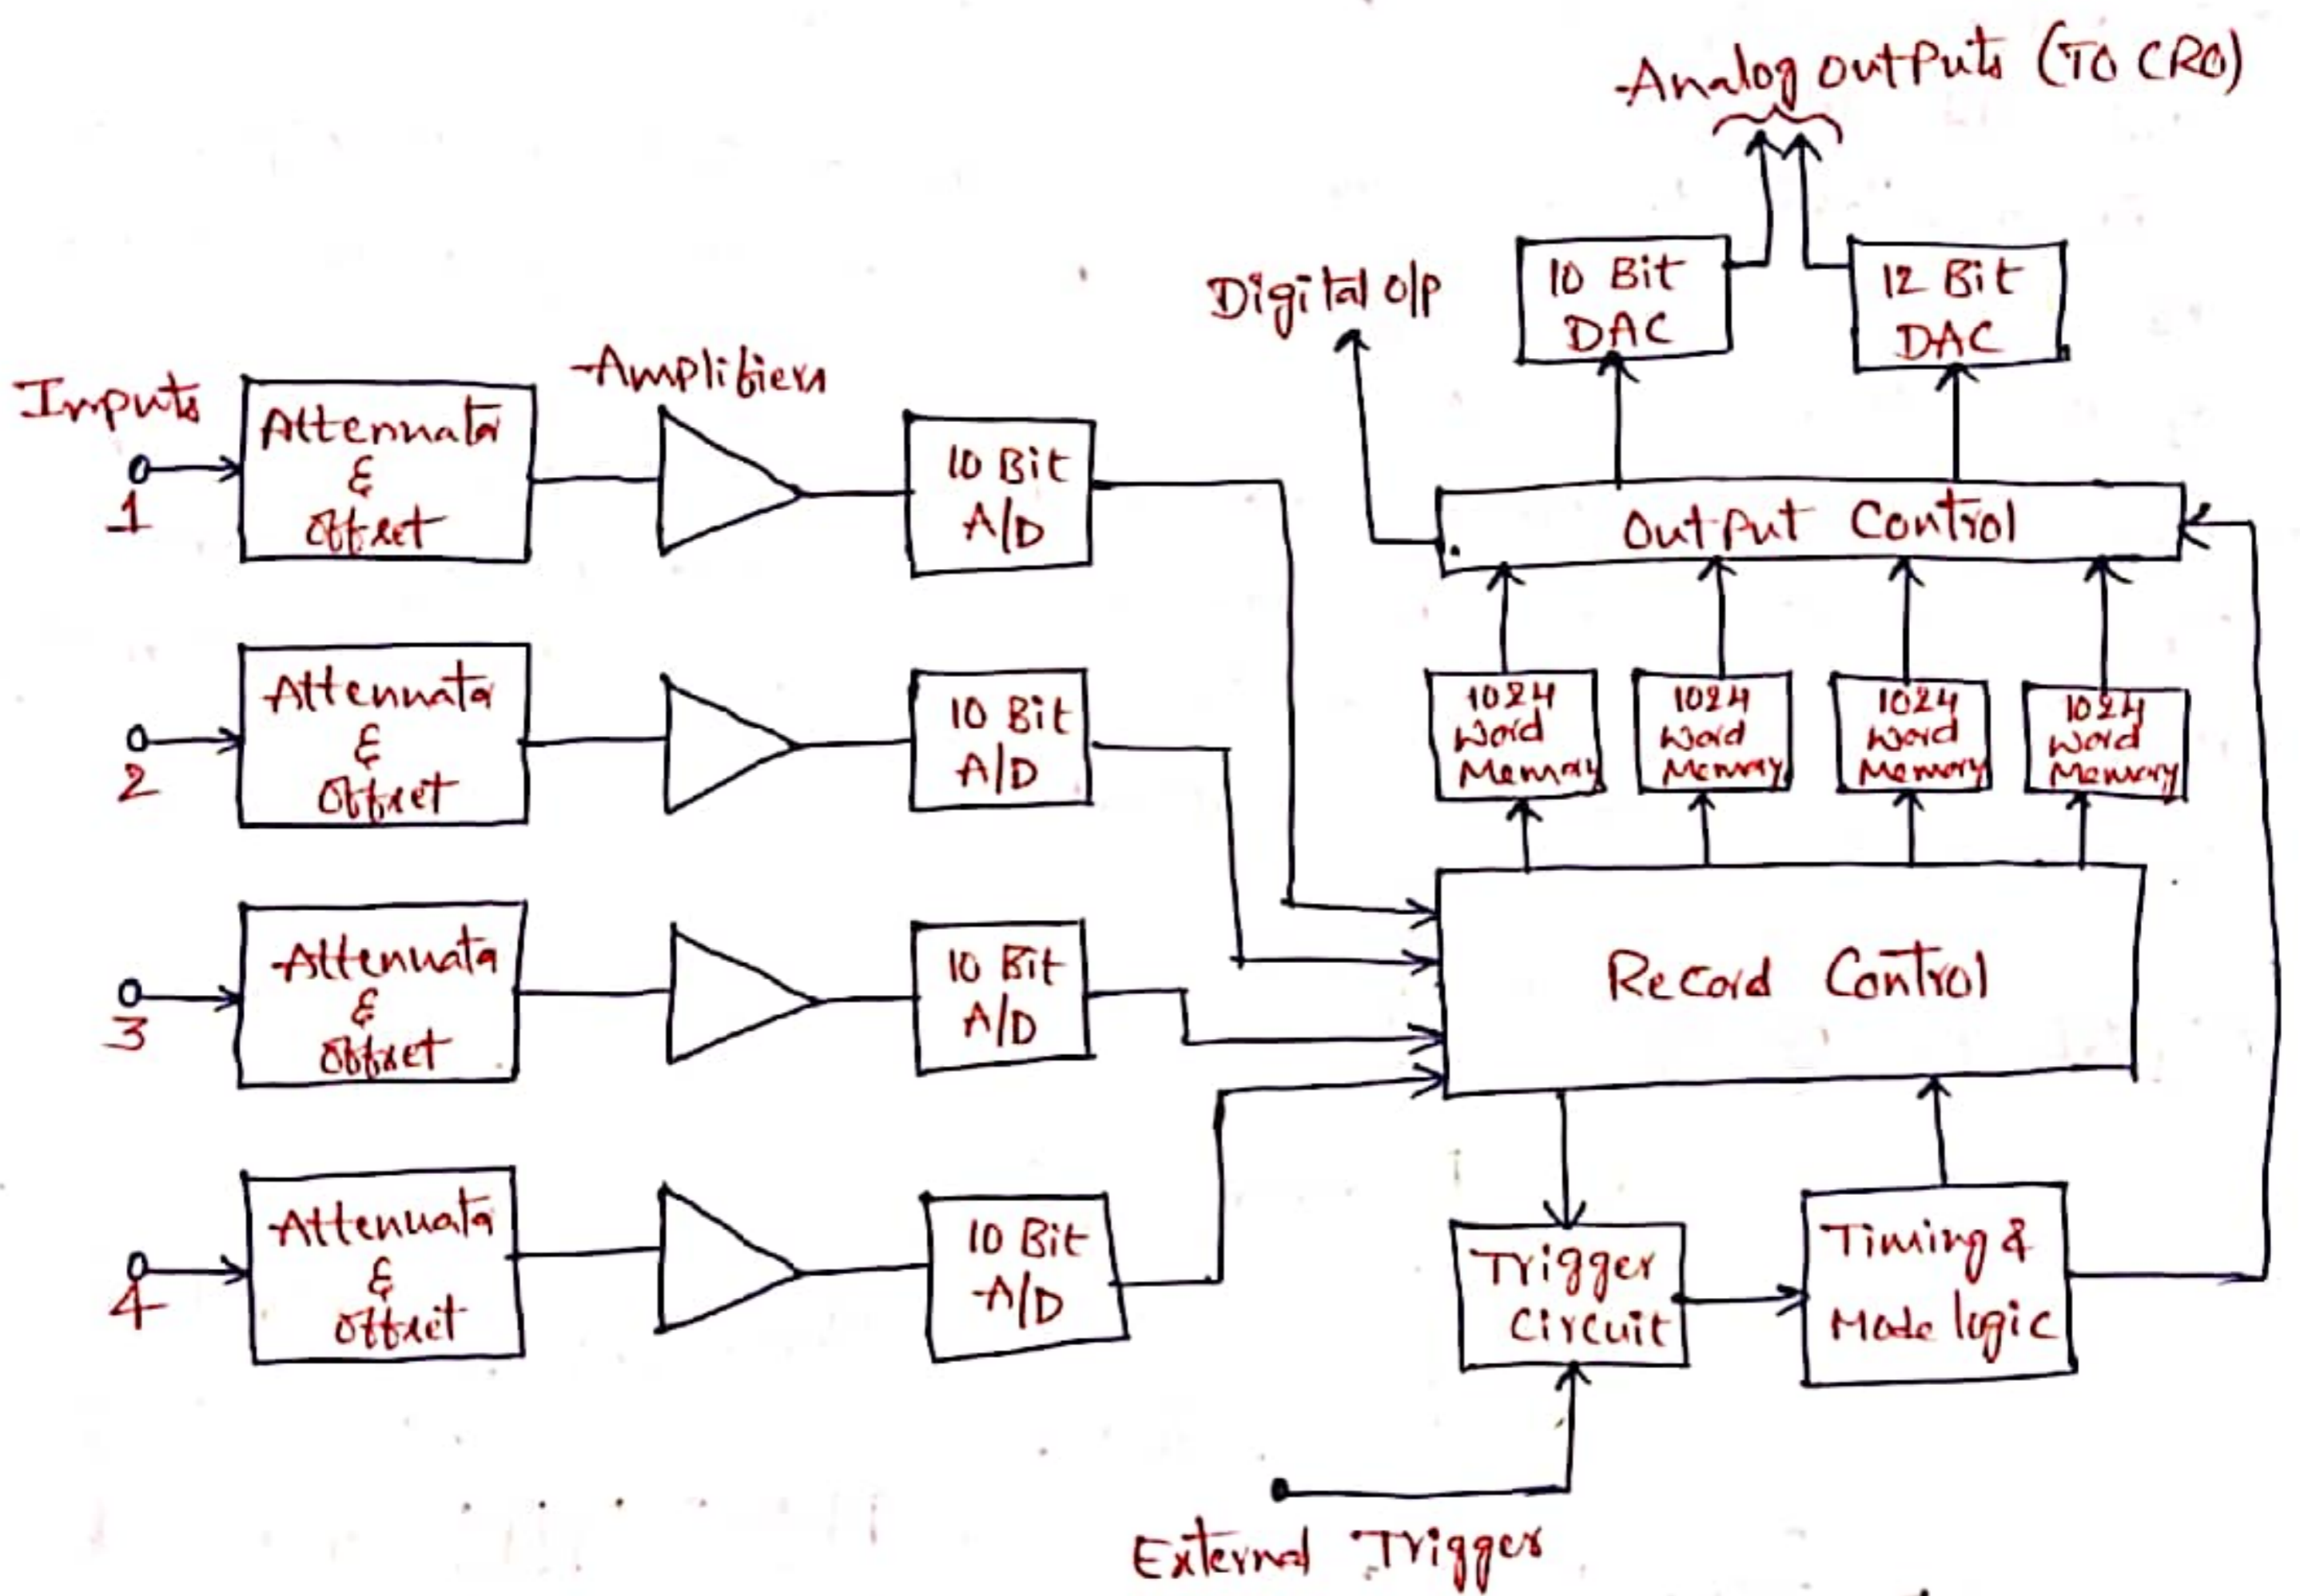 Analog outputs (TO CRO)
Digital o/p
10 Bit
DAC
12 Bit
DAC
Inputs
Amplifiers
1
Attenuator
&
Offset
10 Bit
A/D
Output Control
2
Attenuator
&
Offset
10 Bit
A/D
1024
Word
Memory
1024
Word
Memory
1024
Word
Memory
1024
Word
Memory
3
Attenuator
&
Offset
10 Bit
A/D
Record Control
4
Attenuator
&
Offset
10 Bit
A/D
Trigger
Circuit
Timing &
Mode logic
External Trigger